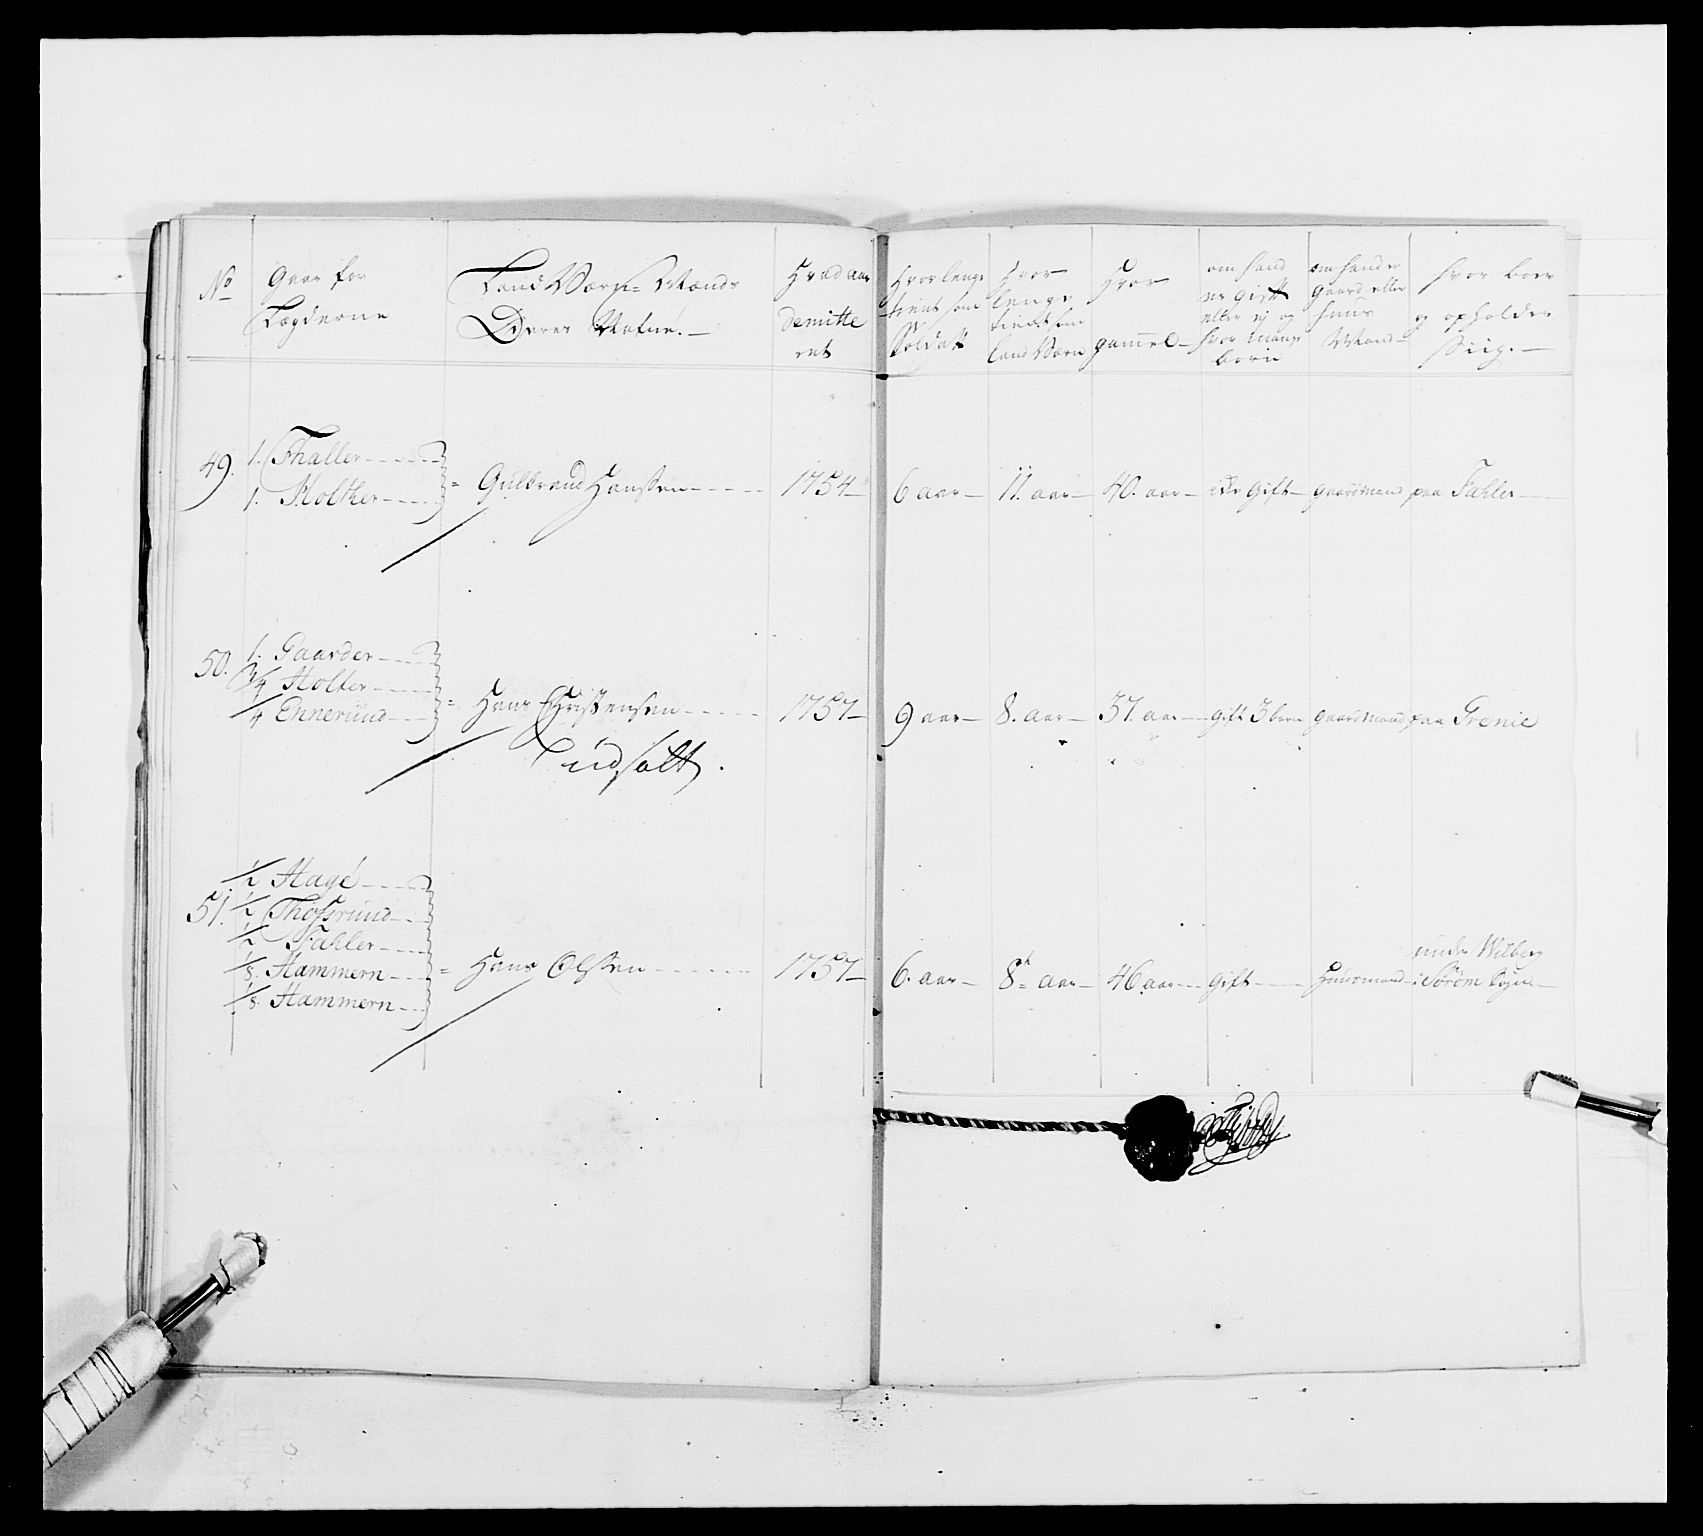 No
Gaar for
Lægderne
Land Værn=Mænds
Deres Nafne.
Hvad aar
demitte
ret
Hvor lenge
tient som
Soldat
Hvor
lenge
tient som
Land Værn
Hvor
gammel
om hand
er gift
eller ej og
hvor mange
børn
om hand er
gaard eller
huus
Mand
hvor boer
og opholder
Siig.
49. 1. Thaller
1. Holther = Gulbrand Hanssen 1754 6 aar 11. aar 40. aar gift gaardmand paa Fahler
50. 1. Gaarder
3/4 Holter
1/4 Ennerund = Hans Christensen 1757 9 aar 8. aar 37. aar gift 3 børn gaardmand paa Grenie
udsatt.
51. 1/2 Hagé
1/2 Thøssrund
1/2 Fahler
1/8. Hammern
1/8. Hammern = Hans Olssen 1757 6. aar 8 aar 46 aar gift Huusmand
under Wilberg
i Sørom Sogn